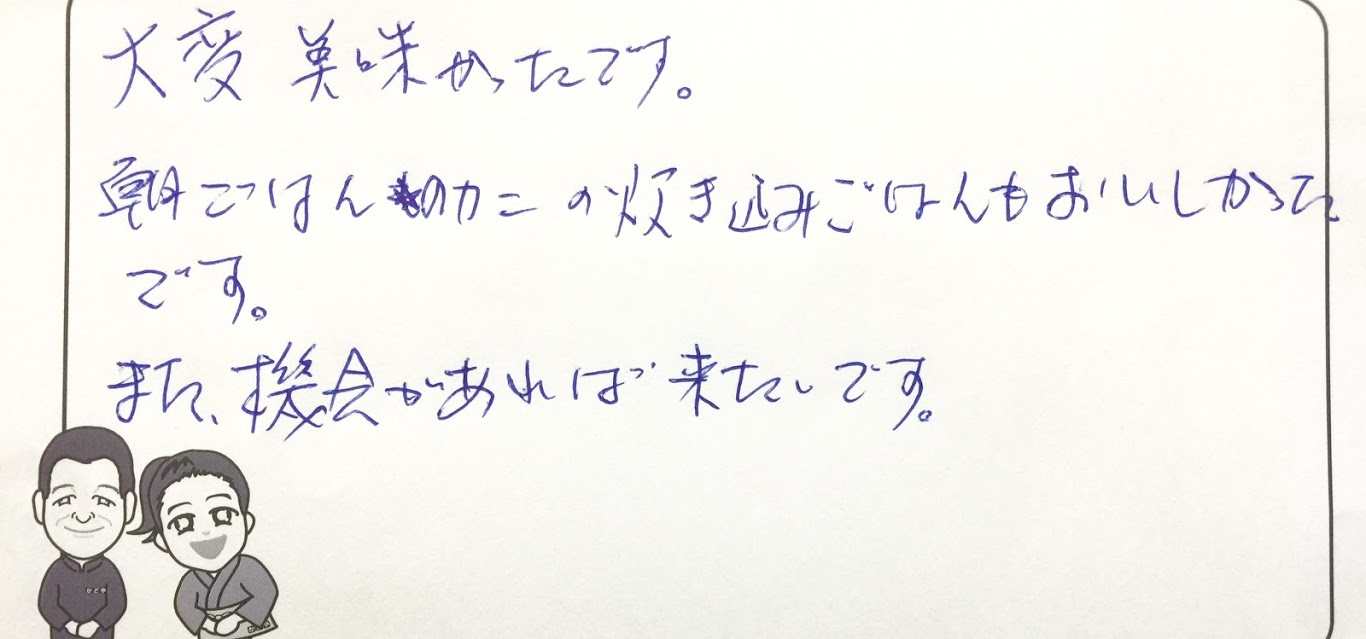 大変 美味かったです。
朝ごはんのカニの炊き込みごはんもおいしかった
です。
また、機会があれば来たいです。
かどや